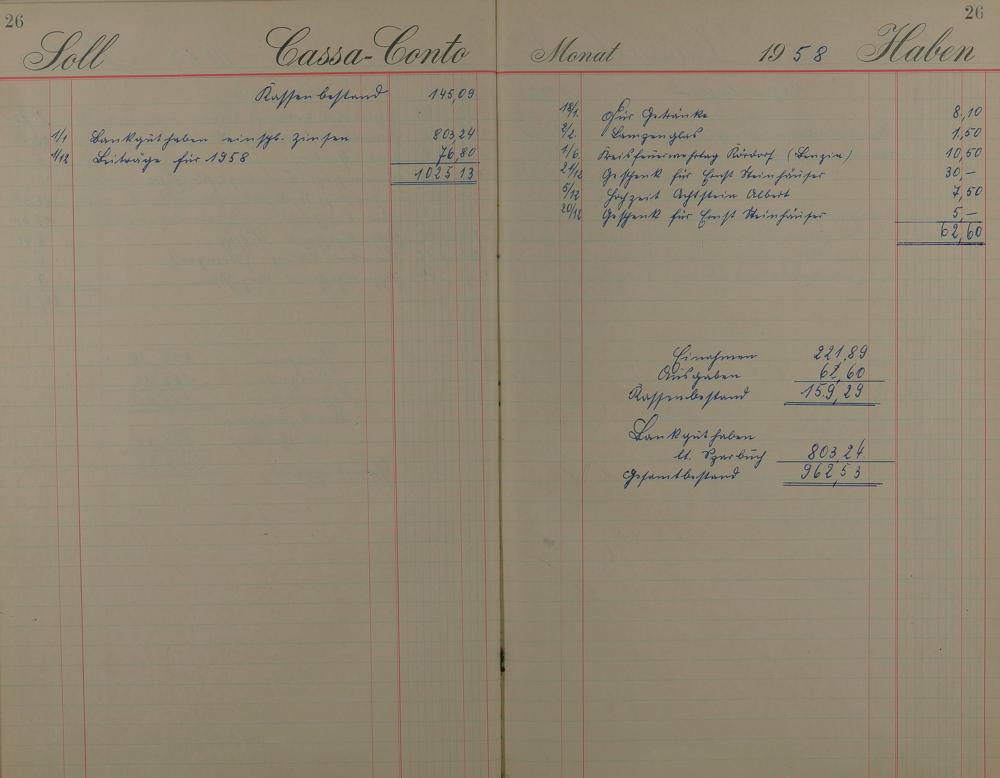 26
Soll Cassa-Conto
Kassenbestand 145,09
1/1 Bankguthaben einschl. Zinsen 803,24
1/12 Beiträge für 1958 76,80
1025 13
26
Monat 1958 Haben
18/1. Für Getränke 8,10
2/2. Lampenglas 1,50
1/6. Kreisfeuerwehrtag Kördorf (Benzin) 10,50
21/12 Geschenk für Ernst Steinhäuser 30,–
5/12 Hochzeit Albert 7,50
20/12 Geschenk für Ernst Steinhäuser 5,–
62,60
Einnahmen 221,89
Ausgaben 62,60
Kassenbestand 159,29
Bankguthaben
lt. Sparbuch 803,24
Gesamtbestand 962,53